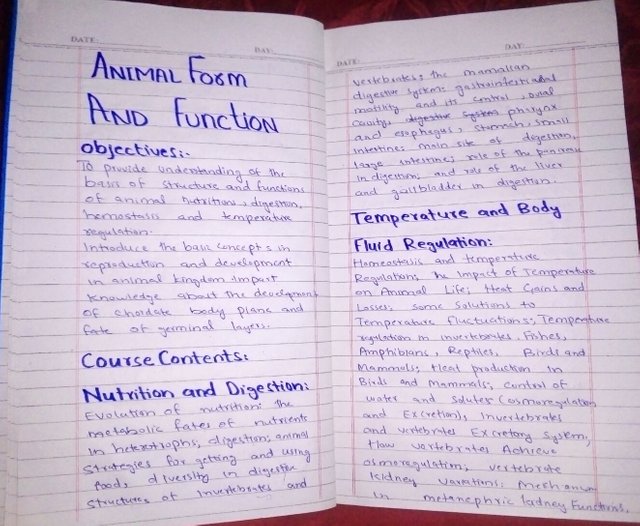 DATE:
DAY:
ANIMAL FORM
AND FUNCTION
objectives:-
To provide understanding of the
basis of structure and functions
of animal nutritions, digestion,
hemostasis and temperature
regulation.
Introduce the basic concepts in
reproduction and development
in animal kingdom. Impart
knowledge about the development
of chordate body plans and
fate of germinal layers.
Course Contents:
Nutrition and Digestion:
Evolution of nutrition; the
metabolic fates of nutrients
in heterotrophs; digestion; animal
strategies for getting and using
food, diversity in digestive
structures of invertebrates and
DATE:
DAY:
vertebrates; the mamalian
digestive system: gastrointestinal
motility and its control, oral
cavity, digestive system pharynx
and esophagus, stomach, small
intestine: main site of digestion,
large intestine; role of the pancreas
in digestion; and role of the liver
and gallbladder in digestion.
Temperature and Body
Fluid Regulation:
Homeostasis and temperature
Regulation; the Impact of Temperature
on Animal Life; Heat Gains and
Losses; some solutions to
Temperature fluctuations; Temperature
regulation in invertebrates, Fishes,
Amphibians, Reptiles, Birds and
Mammals; Heat production in
Birds and Mammals; control of
water and solutes (osmoregulation
and Excretion), Invertebrates
and vertebrates Excretory System;
How vertebrates Achieve
osmoregulation; vertebrate
kidney variations; Mechanism
in metanephric kidney Functions.